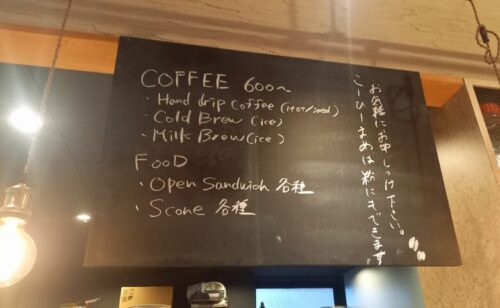 COFFEE 600~
・Hand drip Coffee (Hot/iced)
・Cold Brew (ice)
・Milk Brew (ice)
FooD
・Open Sandwich 各種
・Scone 各種
こーひーまめは粉にもできます
お気軽にお申しつけ下さい。